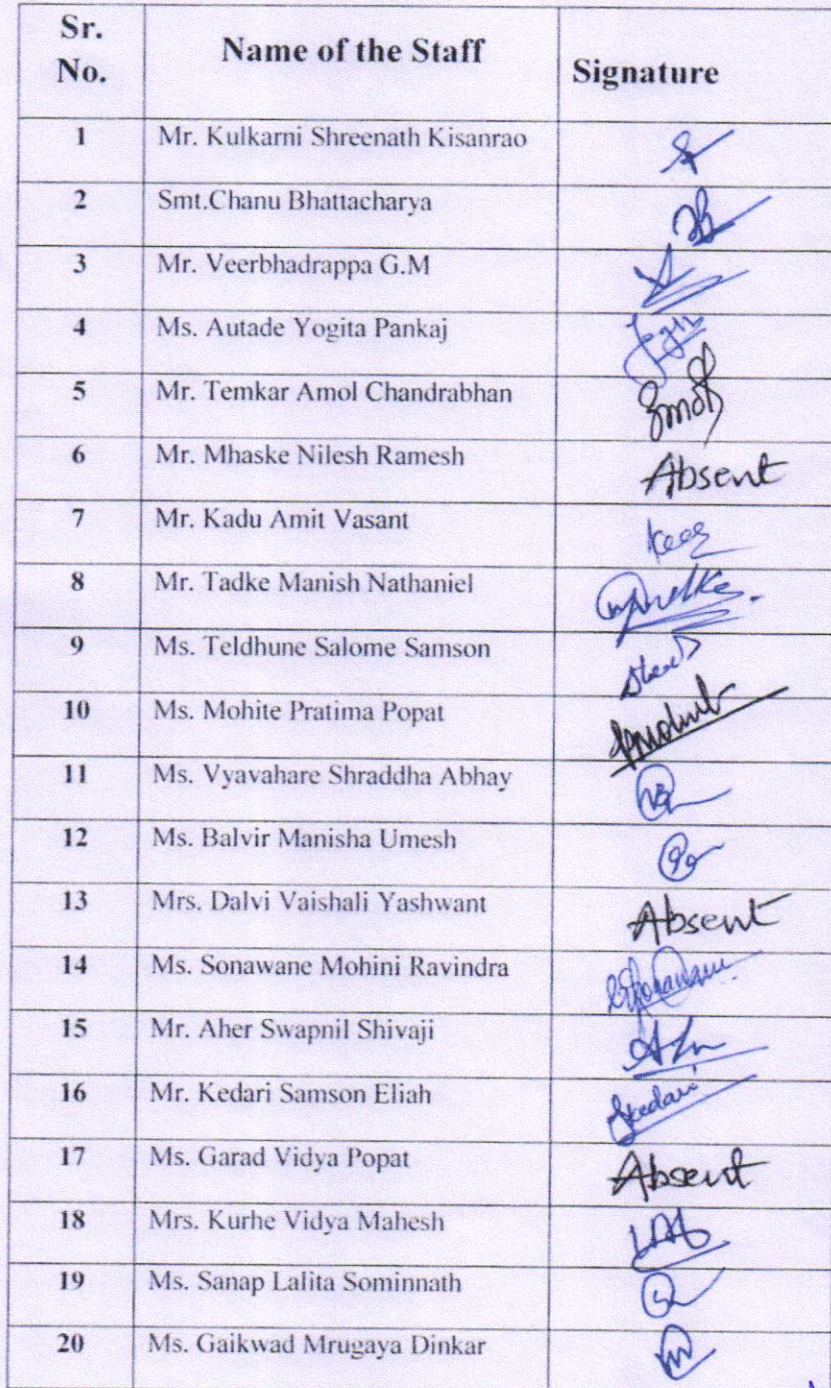 Sr. No. Name of the Staff Signature
1 Mr. Kulkarni Shreenath Kisanrao
2 Smt.Chanu Bhattacharya
3 Mr. Veerbhadrappa G.M
4 Ms. Autade Yogita Pankaj
5 Mr. Temkar Amol Chandrabhan
6 Mr. Mhaske Nilesh Ramesh Absent
7 Mr. Kadu Amit Vasant
8 Mr. Tadke Manish Nathaniel
9 Ms. Teldhune Salome Samson
10 Ms. Mohite Pratima Popat
11 Ms. Vyavahare Shraddha Abhay
12 Ms. Balvir Manisha Umesh
13 Mrs. Dalvi Vaishali Yashwant Absent
14 Ms. Sonawane Mohini Ravindra
15 Mr. Aher Swapnil Shivaji
16 Mr. Kedari Samson Eliah Skedari
17 Ms. Garad Vidya Popat Absent
18 Mrs. Kurhe Vidya Mahesh
19 Ms. Sanap Lalita Sominnath
20 Ms. Gaikwad Mrugaya Dinkar